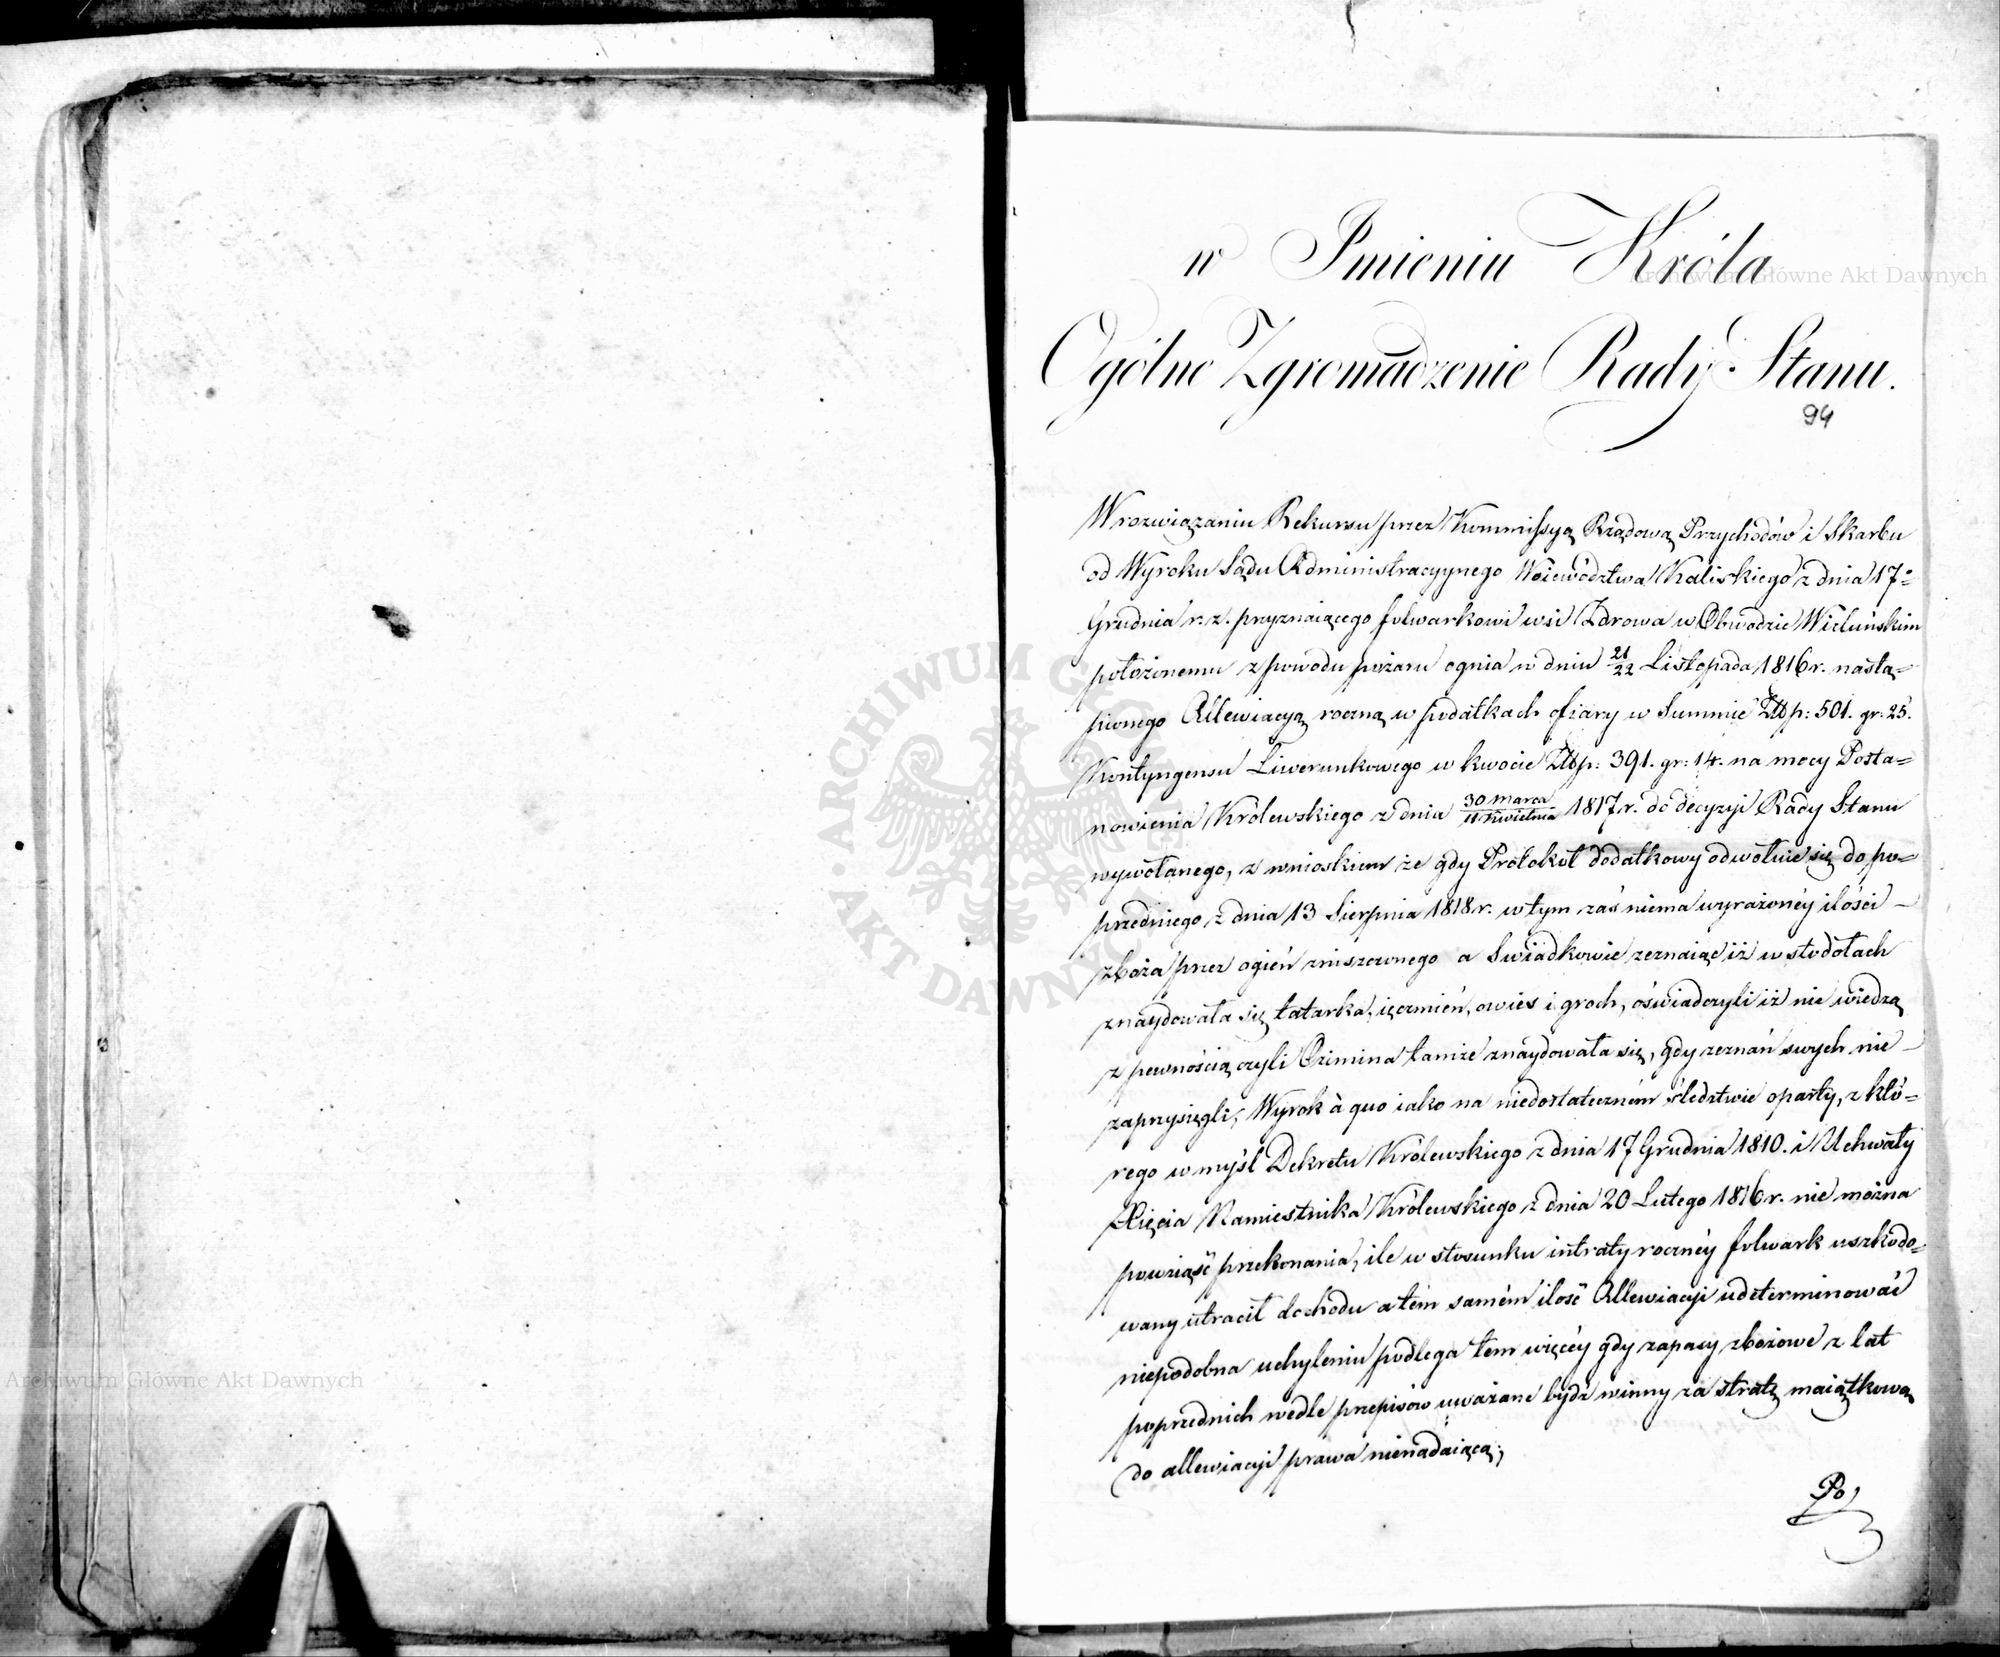 w Imieniu Króla
Ogólne Zgromadzenie Rady Stanu.
94
W rozwiązaniu Rekursu przez Kommissyą Rządową Przychodów i Skarbu
od Wyroku Sądu Administracyynego Woiewództwa Kaliskiego z dnia 17=
Grudnia r. z. przyznaiącego folwarkowi wsi Zdrowa w Obwodzie Wieluńskim
położonemu z powodu pożaru ognia w dniu 21/22 Listopada 1816 r. nastą=
pionego Allewiacyą roczną w podatkach ofiary w Summie Złłp: 501. gr: 25.
Kontyngensu Liwerunkowego w kwocie Złłp: 391. gr: 14. na mocy Posta=
nowienia Królewskiego z dnia 30 Marca/11 Kwietnia 1817 r. do decyzyi Rady Stanu
wywołanego, z wnioskiem że gdy Protokół dodatkowy odwołuie się do po=
przedniego z dnia 13 Sierpnia 1818 r. w tym zaś niema wyrażonéy ilości –
zboża przez ogień zniszczonego a Swiadkowie zeznaiąc iż w stodołach
znaydowała się tatarka, ięczmień, owies i groch, oświadczyli iż nie wiedzą
z pewnością czyli Ozimina tamże znaydowała się, gdy zeznań swych nie –
zaprzysięgli; Wyrok à quo iako na niedostateczném śledztwie oparty, z któ=
rego w myśl Dekretu Królewskiego z dnia 17 Grudnia 1810. i Uchwały
Xięcia Namiestnika Królewskiego z dnia 20 Lutego 1816 r. nie można
powziąść przekonania, ile w stosunku intraty rocznéy folwark uszkodo=
wany utracił dochodu a tém samém ilość Allewiacyi udeterminować
niepodobna uchyleniu podlega tem więcéy gdy zapasy zbożowe z lat
poprzednich wedle przepisów uważane bydź winny za stratę maiątkową
do allewiacyi prawa nienadaiącą;
Po
Archiwum Główne Akt Dawnych
ARCHIWUM GŁÓWNE AKT DAWNYCH
Archiwum Główne Akt Dawnych